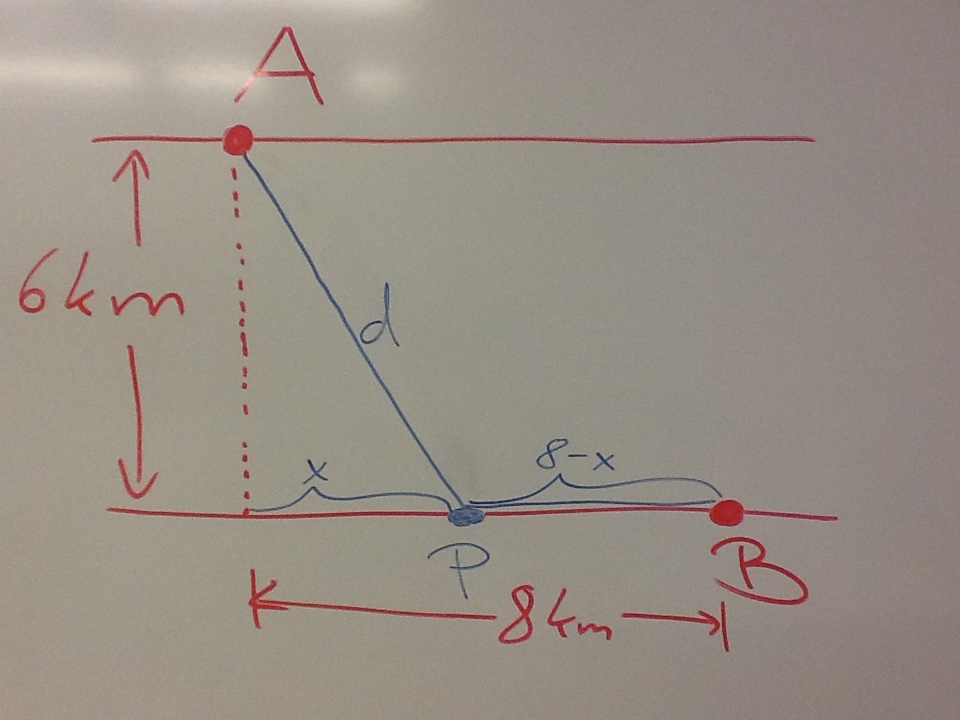 A
6km
d
x
8-x
P
B
8km